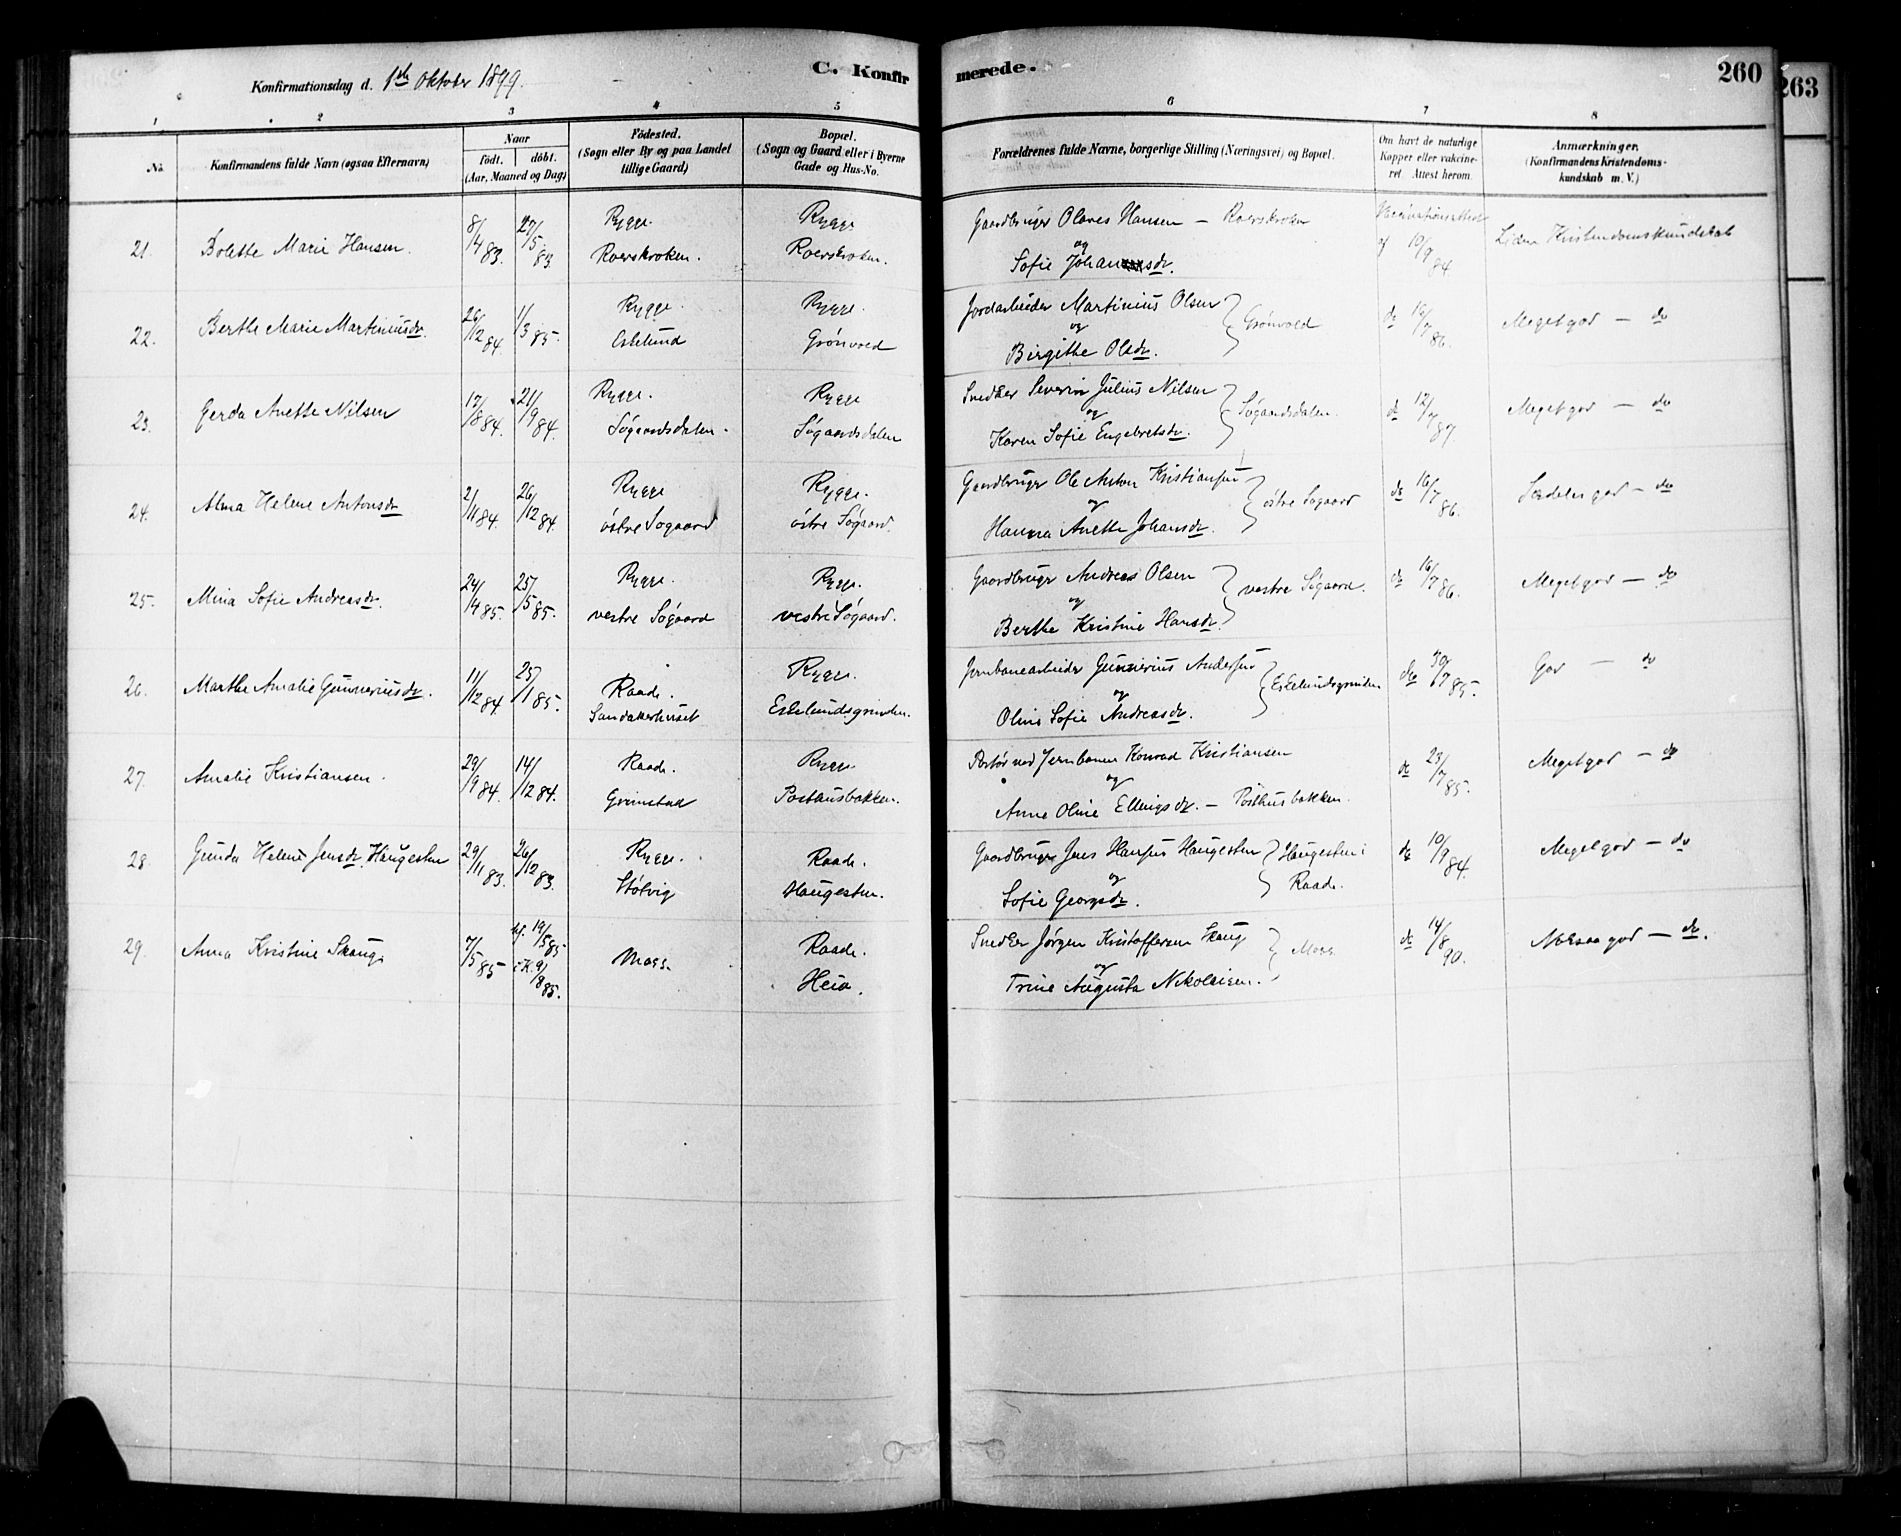 Konfirmationsdag d. 1ste Oktober 1899.
C. Konfirmerede.
260
263
1
2
3
4
5
6
7
8
No.
Konfirmandens fulde Navn (ogsaa Efternavn)
Naar
födt. döbt.
(Aar, Maaned og Dag)
Födested.
(Sogn eller By og paa Landet
tillige Gaard)
Bopæl.
(Sogn og Gaard eller i Byerne
Gade og Hus-No.
Forældrenes fulde Navne, borgerlige Stilling (Næringsvei) og Bopæl.
Om havt de naturlige
Kopper eller vakcine-
ret. Attest herom.
Anmærkninger.
(Konfirmandens Kristendoms-
kundskab m. V.)
21. Bolette Marie Hansen. 8/4 83. 27/5 83. Rygge. Roerskroken. Rygge Roerskroken.
Gaardbruger Olaves Hansen — Roerskroken
og
Sofie Johansdr.
Vaccinationsattest af 10/9 84
Liden Kristendomskundskab
22. Berthe Marie Martiniusdr. 26/12 84. 1/3 85. Rygge. Eskelund Rygge. Grönvold
Jordarbeider Martinius Olsen
og
Birgithe Olsdr.
Grönvold
do 16/7 86.
Meget god — do
23. Gerda Anette Nilsen 17/8 84. 21/9 84. Rygge. Søgaardsdalen. Rygge Søgaardsdalen
Snedker Severin Julius Nilsen
og
Karen Sofie Engebretsdr.
Søgaardsdalen.
do 12/7 87.
Meget god — do
24. Alma Helene Antonsdr 2/11 84. 26/12 84. Rygge østre Søgaard Rygge. østre Søgaard.
Gaardbruger Ole Anton Kristiansen
og
Hanna Anette Johansdr.
østre Søgaard
do 16/7 86.
Særdeles god — do
25. Mina Sofie Andreasdr. 24/4 85. 25/5 85. Rygge. vestre Søgaard Rygge. vestre Søgaard.
Gaardbruger Andreas Olsen
og
Berthe Kristine Hansdr.
vestre Søgaard.
do 16/7 86.
Meget god — do
26. Marthe Amalie Gunneriusdr. 11/12 84. 25/1 85. Raade. Sandakerhuset Rygge. Eskelundsgrinden.
Jernbanearbeider Gunnerius Andersen
og
Oline Sofie Andreasdr.
Eskelundsgrinden
do 30/7 85.
God — do
27. Amalie Kristiansen. 29/9 84. 14/12 84. Raade. Grimstad Rygge Posthusbakken.
Portör ved Jernbanen Konrad Kristiansen
og
Anne Oline Ellingsdr. — Posthusbakken.
do 23/7 85.
Meget god — do
28. Gunda Helene Jensdr. Haugesten 29/11 83. 26/12 83. Rygge. Støtvig Raade. Haugesten.
Gaardbruger Jens Hansen Haugesten
og
Sofie Georgsdr.
Haugesten i
Raade.
do 10/9 84.
Meget god — do
29. Anna Kristine Skaug. 7/5 85 hj. 19/5 85 i K. 9/8 85. Moss. Raade. Heia.
Snedker Jørgen Kristoffersen Skaug
og
Trine Augusta Nikolaisen.
Moss
do 14/8 90.
Nogsaa god — do.